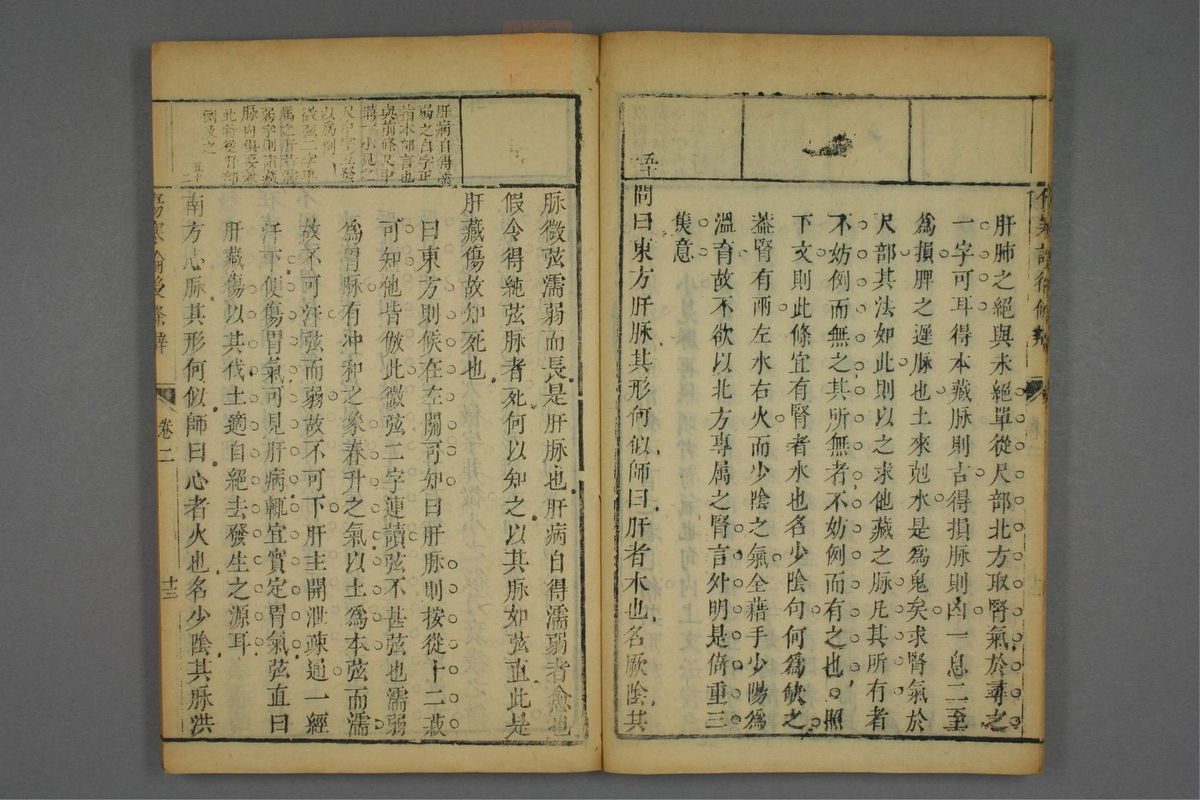 肝肺之絕與未絕單從尺部北方取腎氣於尋之
一字可耳得本藏脉則吉得損脉則凶一息二至
爲損脾之遲脉也土來剋水是爲鬼矣求腎氣於
尺部其法如此則以之求他藏之脉凡其所有者
不妨例而無之其所無者不妨例而有之也照
下文則此條宜有腎者水也名少陰句何爲缺之
葢腎有兩左水右火而少陰之氣全藉手少陽爲
溫育故不欲以北方專属之腎言外明是倚重三
焦意
五十
問曰東方肝脉其形何似師曰肝者木也名厥陰其
脉微弦濡弱而長是肝脉也肝病自得濡弱者愈也
假令得純弦脉者死何以知之以其脉如弦直此是
肝藏傷故知死也
曰東方則候在左關可知曰肝脉則按從十二菽
可知他皆倣此微弦二字連讀弦不甚弦也濡弱
爲胃脉有冲和之象春升之氣以土爲本弦而濡
故不可汗弦而弱故不可下肝主開泄疎通一經
汗下便傷胃氣可見肝病輒宜實定胃氣弦直曰
肝藏傷以其伐土適自絕去發生之源耳
南方心脉其形何似師曰心者火也名少陰其脉洪
肝病自得濡
弱之自字正
指本部言也
與前條尺中
時一小見之
尺中字
以爲例
微弦二字
属之肝若濡
弱字則諸藏
脉内俱要
此
例及之
傷寒論後條辨
卷二
十三